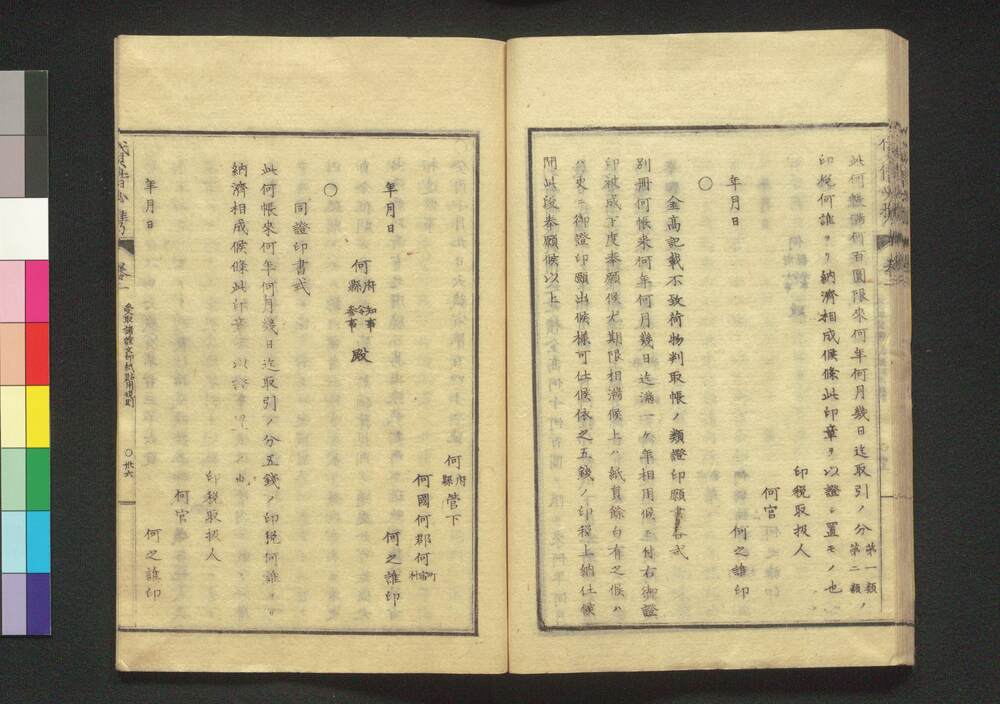 此何帳滿何百圓限來何年何月幾日迄取引ノ分第一類第二類ノ
印税何誰ヨリ納濟相成候條此印章ヲ以證シ置モノ也
印税取扱人
何官
年月日 何之誰印
○
金高記載不致荷物判取帳ノ類證印願書式
別冊何帳來何年何月幾日迄滿一ヶ年相用候ニ付右御證
印被成下度奉願候尤期限相滿候上ハ紙員餘白有之候ハ
御證印願出候樣可仕候依之五錢ノ印税上納仕候
間此段奉願候以上
何府縣管下
何國何郡何町宿村
年月日 何之誰印
何府縣知事令參事殿
○
同證印書式
此何帳來何年何月幾日迄取引ノ分五錢ノ印税何誰ヨリ
納濟相成候條此印章ヲ以證
印税取扱人
何官
年月日 何之誰印
卷一
受取諸證文印紙貼用規則
○卅六